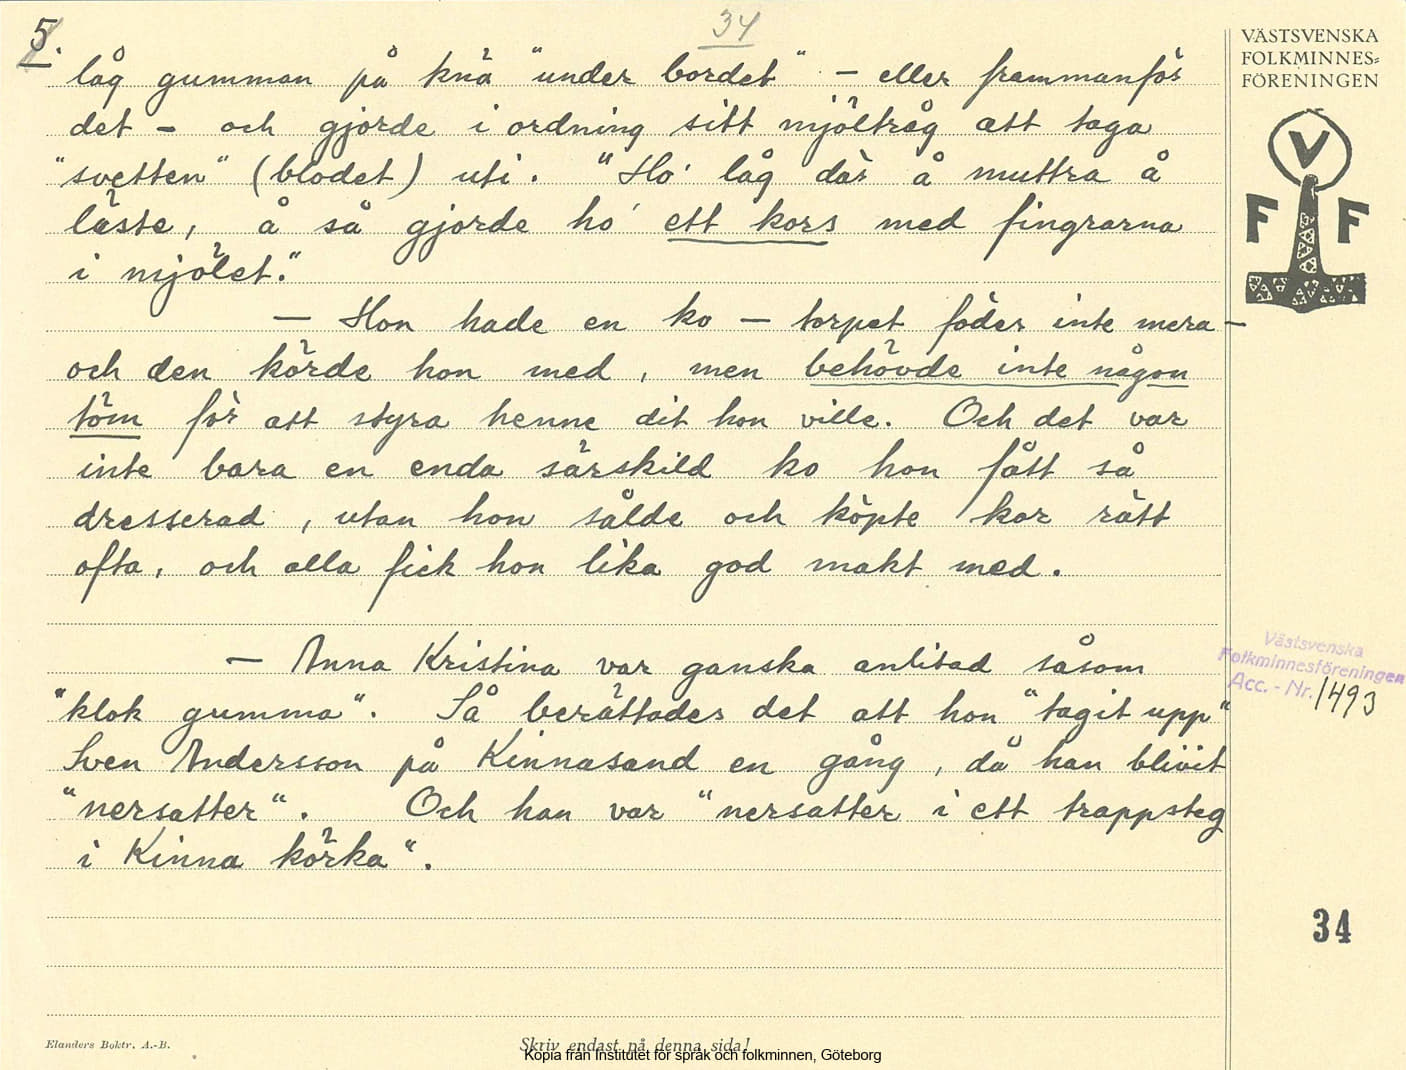 5.
34
VÄSTSVENSKA
FOLKMINNES=
FÖRENINGEN
V
F F
låg gumman på knä "under bordet" - eller frammanför
det - och gjorde i ordning sitt mjöltråg att taga
"svetten" (blodet) uti. "Ho' låg där å muttra å
läste, å så gjorde ho' ett kors med fingrarna
i mjölet."
- Hon hade en ko - torpet föder inte mera -
och den körde hon med, men behövde inte någon
töm för att styra henne dit hon ville. Och det var
inte bara en enda särskild ko hon fått så
dresserad, utan hon sålde och köpte kor rätt
ofta, och alla fick hon lika god makt med.
- Anna Kristina var ganska anlitad såsom
"klok gumma". Så berättades det att hon "tagit upp"
Sven Andersson på Kinnasand en gång, då han blivit
"nersatter". Och han var "nersatter i ett trappsteg
i Kinna körka".
Västsvenska
Folkminnesföreningen
Acc. - Nr. 1493
34
Elanders Boktr. A.-B.
Skriv endast på denna sida!
Kopia från Institutet för språk och folkminnen, Göteborg